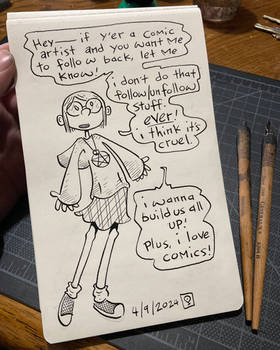 Hey— if y'er a comic
artist and you want me
to follow back, let me
know!
i don't do that
follow/unfollow
stuff.
ever!
i think it's
cruel.
i wanna
build us all
up!
Plus, i love
comics!
4/9/2024